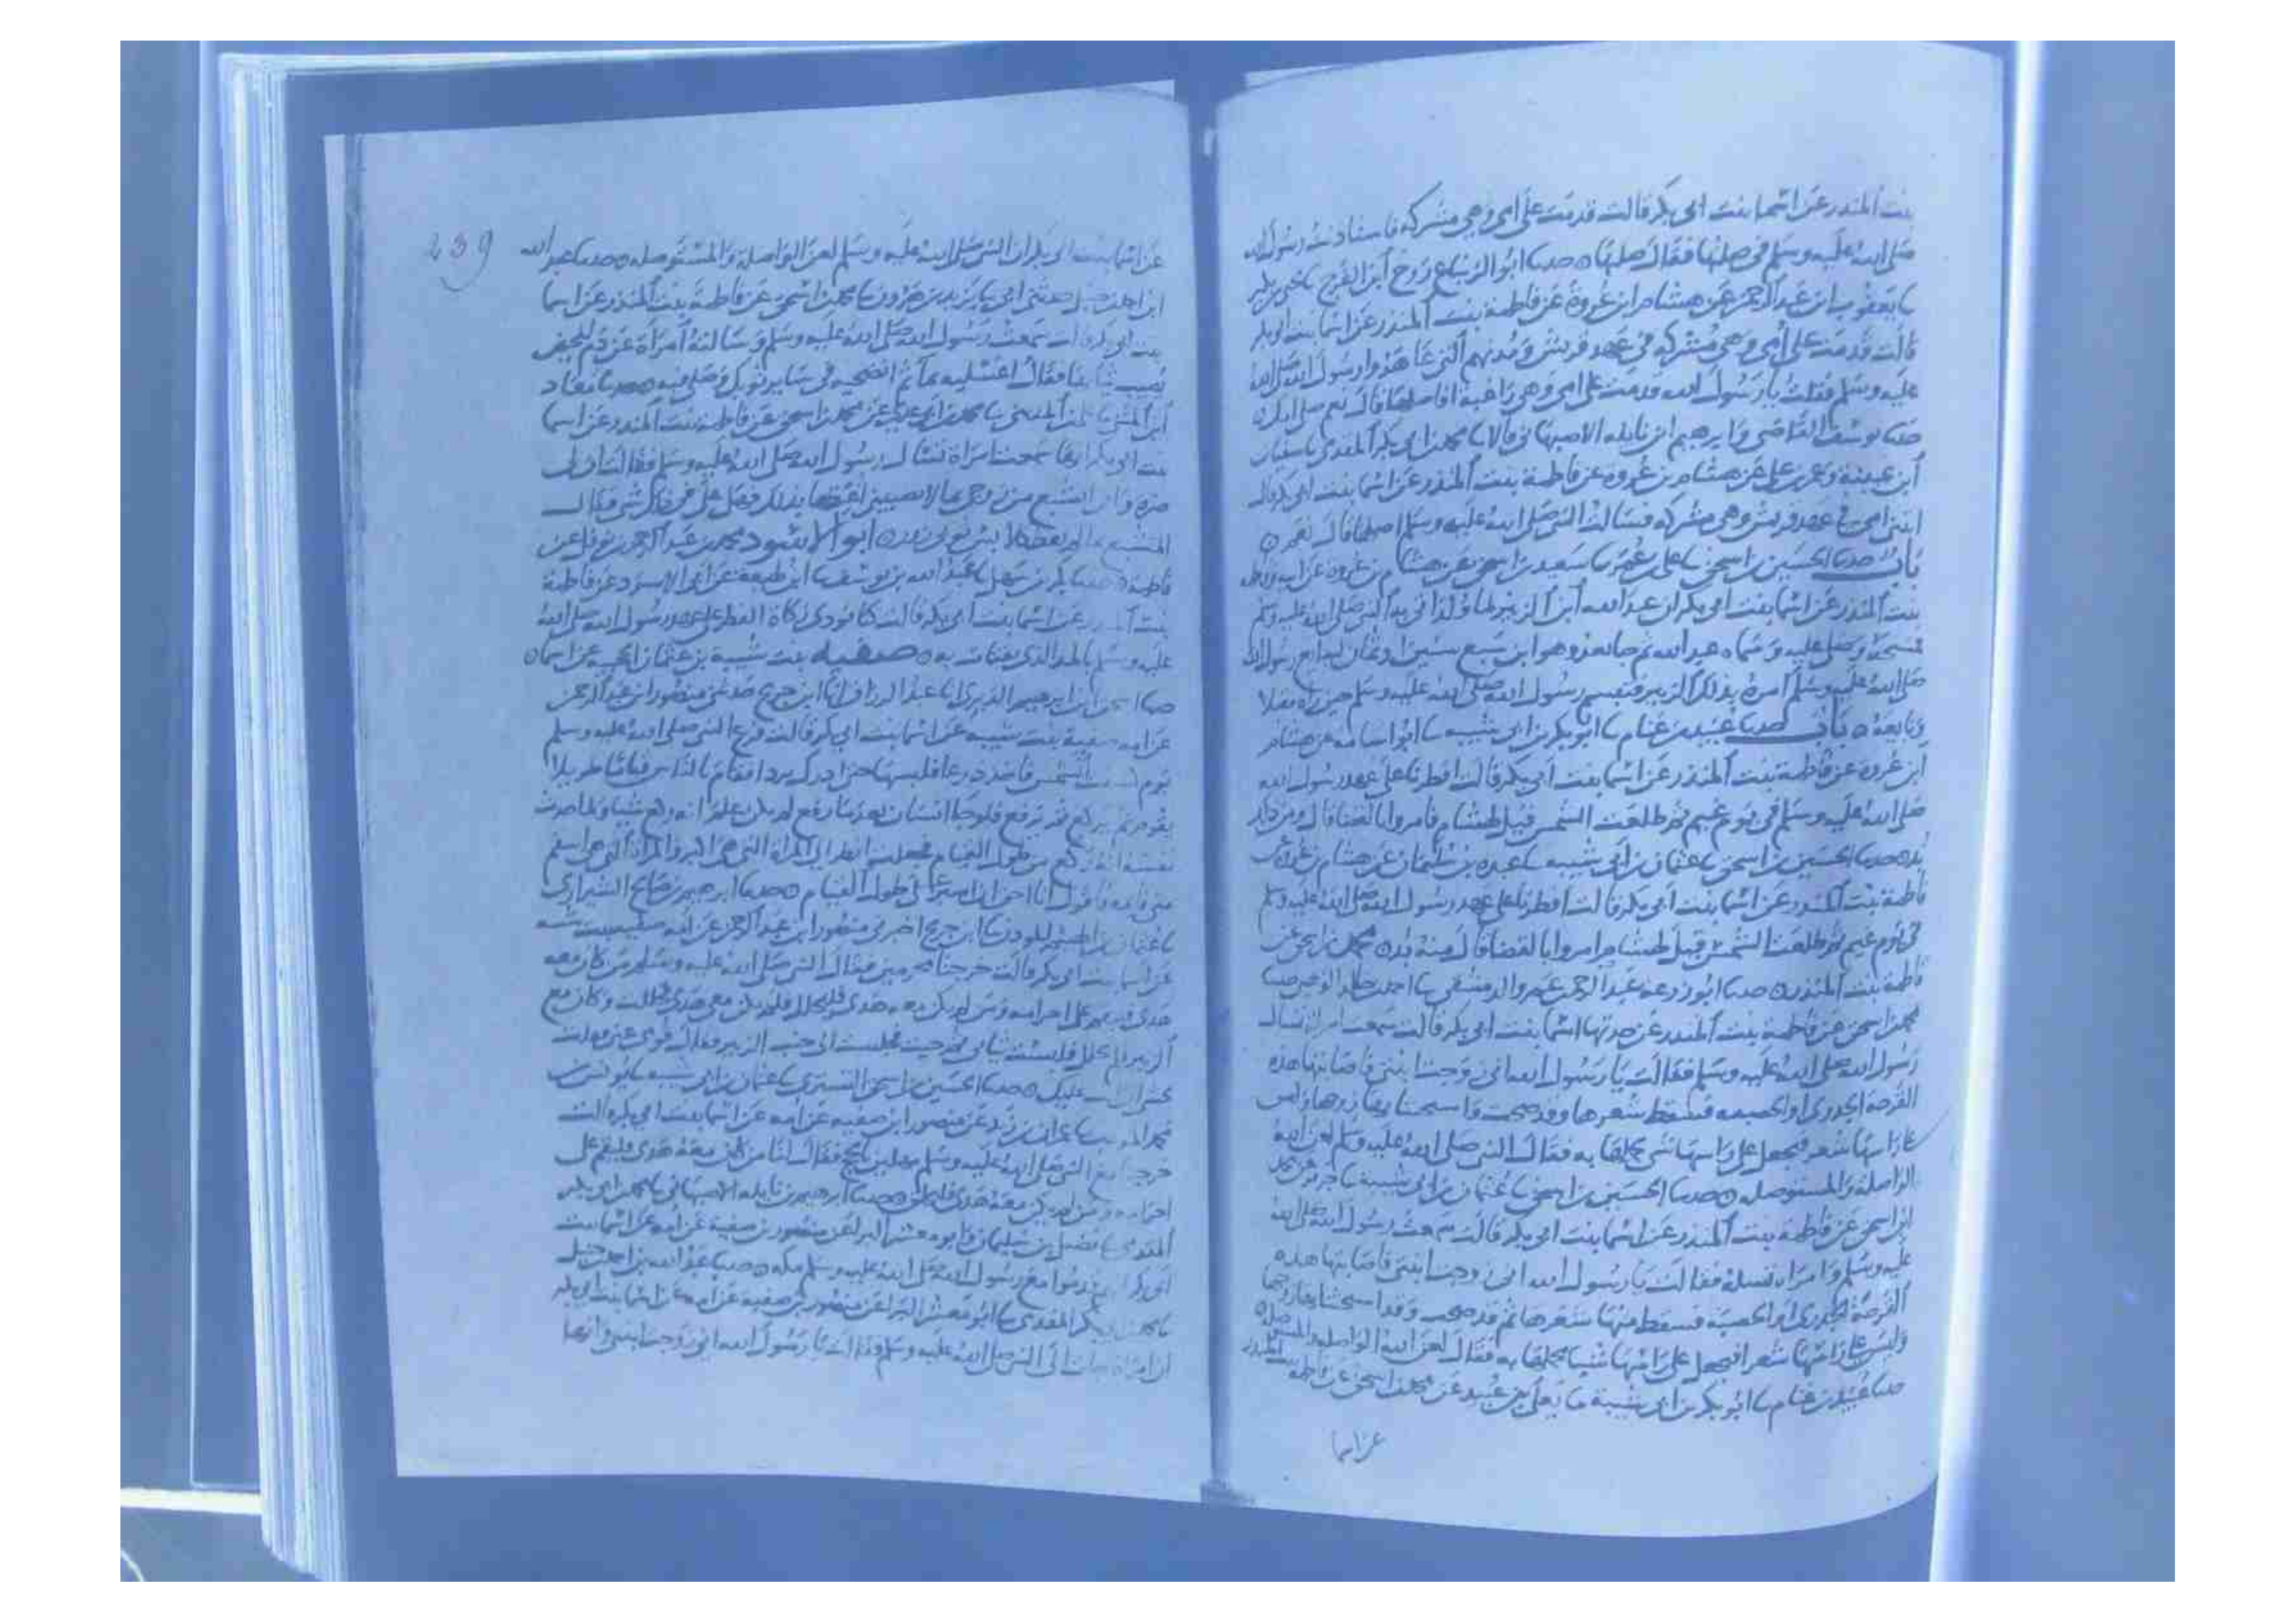 بنت المنذر عن اسما بنت ابى بكر قالت قدمت على امى وهى مشركه فاستاذنت رسول الله
صلى الله عليه وسلم فى صلتها فقال صلها حدثنا ابو الزنباع روح ابن الفرج يحيى بن بكير
يعقوب ابن عبد الرحمن عن هشام ابن عروة عن فاطمة بنت المنذر عن اسما بنت ابى بكر
قالت قدمت على امى وهى مشركه فى عهد قريش ومدتهم التى عاهدوا رسول الله صلى الله
عليه وسلم فقلت يا رسول الله قدمت على امى وهى راغبة افاصلها قال نعم صلى امك
حدثنا يوسف القاضى وابرهيم ابن نايله الاصبهانى قالا محمد بن ابى بكر المقدمى سفيان
ابن عيينة وعمر بن على عن هشام بن عروه عن فاطمة بنت المنذر عن اسما بنت ابى بكر قالت
اتتنى امى فى عهد قريش وهى مشركه فسالت النبى صلى الله عليه وسلم اصلها قال نعم
باب حدثنا الحسين بن اسحق على بن سعيد بن اسحق عن هشام بن عروه عن ابيه وفاطمه
بنت المنذر عن اسما بنت ابى بكر ان عبد الله ابن الزبير النبى صلى الله عليه وسلم
فمسحه وصلى عليه وسماه عبد الله ثم جا بعد وهو ابن سبع سنين او ثمان ليبايع رسول الله
صلى الله عليه وسلم امره بذلك الزبير فتبسم رسول الله صلى الله عليه وسلم حين راه مقبلا
وبايعه باب حدثنا عبيد بن غنام ابو بكر بن ابى شيبه ابو اسامه عن هشام
ابن عروة عن فاطمة بنت المنذر عن اسما بنت ابى بكر قالت افطرنا على عهد رسول الله
صلى الله عليه وسلم فى يوم غيم ثم طلعت الشمس قيل لهشام فامروا بالقضا قال ومن ذلك
بد حدثنا الحسين بن اسحق عثمان بن ابى شيبه عبده بن سليمان عن هشام بن عروه عن
فاطمة بنت المنذر عن اسما بنت ابى بكر قالت افطرنا على عهد رسول الله صلى الله عليه وسلم
فى يوم غيم ثم طلعت الشمس قيل لهشام امروا بالقضا قال منه بد محمد بن اسحق عن
فاطمة بنت المنذر حدثنا ابو زرعه عبد الرحمن بن عمرو الدمشقى احمد بن خالد الوهبى
محمد بن اسحق عن فاطمة بنت المنذر عن جدتها اسما بنت ابى بكر قالت سمعت امراة تسال
رسول الله صلى الله عليه وسلم فقالت يا رسول الله انى زوجت ابنتى فاصابتها هذه
القرحة الجدرى او الحصبه فسقط شعرها وقد صحت واستحثنا بها زوجها وليس
على راسها شعر فنجعل على راسها شى نجملها به فقال النبى صلى الله عليه وسلم لعن الله
الواصلة والمستوصله حدثنا الحسين بن اسحق عثمان بن ابى شيبة جرير عن محمد
ابن اسحق عن فاطمة بنت المنذر عن اسما بنت ابى بكر قالت سمعت رسول الله صلى الله
عليه وسلم وامراه تسله فقالت يا رسول الله انى زوجت ابنتى فاصابتها هذه
القرحة الجدرى او الحصبة فسقط منها شعرها ثم قد صحت وقد استحثنا بها زوجها
وليس على راسها شعر افنجعل على راسها شيا نجملها به فقال لعن الله الواصله والمستوصله
حدثنا عبيد بن غنام ابو بكر بن ابى شيبة يعلى بن عبيد عن محمد بن اسحق عن فاطمه بنت المنذر
عن اسما
239
عن اسما بنت ابى بكر ان النبى صلى الله عليه وسلم لعن الواصلة والمستوصله حدثنا عبد الله
ابن احمد بن حنبل حدثنى ابى يزيد بن هرون محمد بن اسحق عن فاطمة بنت المنذر عن اسما
بنت ابى بكر قالت سمعت رسول الله صلى الله عليه وسلم وسالته امراة عن دم الحيض
يصيب ثيابها فقال اغسليه بما ثم انضحيه فى ساير ثوبك وصلى فيه حدثنا معاذ
ابن المثنى على بن المدينى محمد بن ابى عدى عن محمد بن اسحق عن فاطمة بنت المنذر عن اسما
بنت ابى بكر انها سمعت امراة تسال رسول الله صلى الله عليه وسلم فقالت ان لى
ضرة وانى اتشبع من زوجى بما لا يعطينى اغيظها بذلك فهل على فى ذلك شى فقال
المتشبع بما لم يعط كلابس ثوبى زور ابو الاسود محمد بن عبد الرحمن بن نوفل عن
فاطمه حدثنا بكر بن سهل عبد الله بن يوسف ابن لهيعة عن ابى الاسود عن فاطمة
بنت المنذر عن اسما بنت ابى بكر قالت كنا نودى زكاة الفطر على عهد رسول الله صلى الله
عليه وسلم بالمد الذى يقتات به صفيه بنت شيبة بن عثمان الحجبيه عن اسما
حدثنا اسحق ابن ابرهيم الدبرى عبد الرزاق ابن جريج حدثنى منصور ابن عبد الرحمن
عن امه صفية بنت شيبه عن اسما بنت ابى بكر قالت فزع النبى صلى الله عليه وسلم
يوم كسفت الشمس فاخذ درعا فلبسها حتى ادرك بردا فقام بالناس قياما طويلا
يقوم ثم يركع ثم يرفع فلو جا انسان بعد ما رفع لم يكن علم انه ركع شيا ولما حدث
نفسه انه ركع من طول القيام فجعلت انظر الى المراة التى هى اكبر والمراة التى هى اسقم
منى قايمه فاقول انا احق ان اصبر على طول القيام حدثنا ابرهيم بن صالح الشيرازى
عثمان بن الهيثم الموذن ابن جريج اخبرنى منصور ابن عبد الرحمن عن امه صفيه بنت شيبه
عن اسما بنت ابى بكر قالت خرجنا محرمين فقال النبى صلى الله عليه وسلم من كان معه
هدى فليقم على احرامه ومن لم يكن معه هدى فليحلل فلم يكن معى هدى فحللت وكان مع
الزبير فلم يحلل فلبست ثيابى ثم جيت فجلست الى جنب الزبير فقال قومى عنى فقلت
تخشى ان اثب عليك حدثنا الحسين بن اسحق التسترى عثمان بن ابى شيبه يونس بن
محمد المودب عمران بن زيد عن منصور ابن صفيه عن امه عن اسما بنت ابى بكر قالت
خرجنا مع النبى صلى الله عليه وسلم مهلين بالحج فقال لنا من كان معه هدى فليقم على
احرامه ومن لم يكن معه هدى فليحلل حدثنا ابرهيم بن نايله الاصبهانى محمد بن ابى بكر
المقدمى فضيل بن سليمان وابو معشر البرا عن منصور بن صفية عن امه عن اسما بنت
ابى بكر انهم قدموا مع رسول الله صلى الله عليه وسلم مكه حدثنا عبد الله بن احمد بن حنبل
محمد بن ابى بكر المقدمى ابو معشر البرا عن منصور بن صفية عن امه عن اسما بنت ابى بكر
ان امراة جات الى النبى صلى الله عليه وسلم فقالت يا رسول الله انى زوجت ابنتى وانها